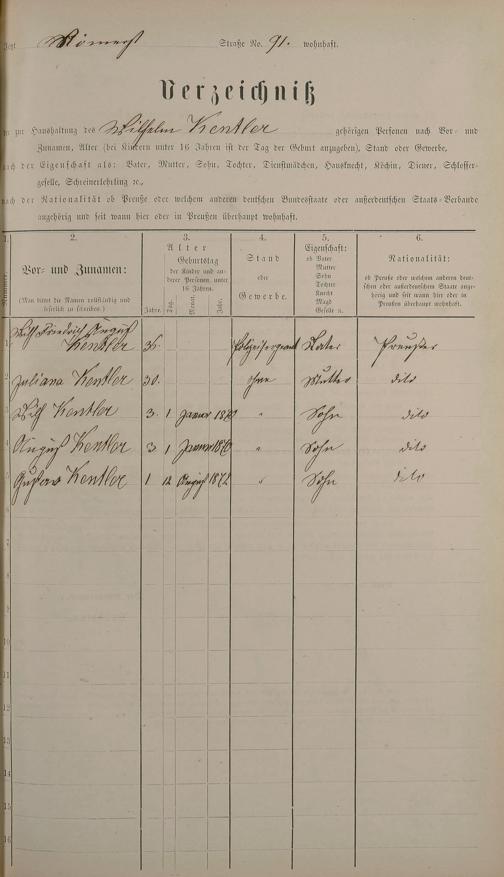 Jetzt Römerst Straße No. 91. wohnhaft.
Verzeichniß
der zur Haushaltung des Wilhelm Kentler gehörigen Personen nach Vor- und
Zunamen, Alter (bei Kindern unter 16 Jahren ist der Tag der Geburt anzugeben), Stand oder Gewerbe,
nach der Eigenschaft als: Vater, Mutter, Sohn, Tochter, Dienstmädchen, Hausknecht, Köchin, Diener, Schlosser-
geselle, Schreinerlehrling ꝛc.,
nach der Nationalität ob Preuße oder welchem anderen deutschen Bundesstaate oder außerdeutschen Staats-Verbande
angehörig und seit wann hier oder in Preußen überhaupt wohnhaft.
1. 2. 3. 4. 5. 6.
Nummer.
Vor- und Zunamen:
(Man bittet die Namen vollständig und
leserlich zu schreiben.)
Alter
Geburtstag
der Kinder und an-
derer Personen unter
16 Jahren.
Jahre. Tag. Monat. Jahr.
Stand
oder
Gewerbe.
Eigenschaft:
ob Vater
Mutter
Sohn
Tochter
Knecht
Magd
Geselle ꝛc.
Nationalität:
ob Preuße oder welchem anderen deut-
schen oder außerdeutschen Staate ange-
hörig und seit wann hier oder in
Preußen überhaupt wohnhaft.
Wilh Friedrich August
1 Kentler 36. Polizeisergeant Vater Preuße
2 Juliana Kentler 30. ohne Mutter dito
3 Wilh Kentler 3. 1 Januar 1870 " Sohn dito
4 August Kentler 3 1 Januar 1870 " Sohn dito
5 Gustav Kentler 1 12 August 1872 " Sohn dito
6
7
8
9
10
11
12
13
14
15
16